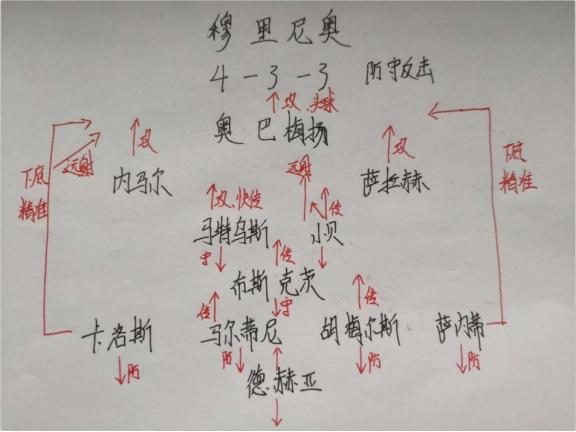 穆里尼奥
4-3-3 防守反击
↑攻、头球
奥巴梅扬
↑攻
远射
下底
精准
内马尔
远射
↑攻
萨拉赫
下底
精准
↑攻、快传
↑传
马特乌斯 小贝
守
↑传
布斯克茨
↓守
传
传
卡洛斯 马尔蒂尼 胡梅尔斯 萨内蒂
↓防 防↓ ↓防 ↓防
德赫亚